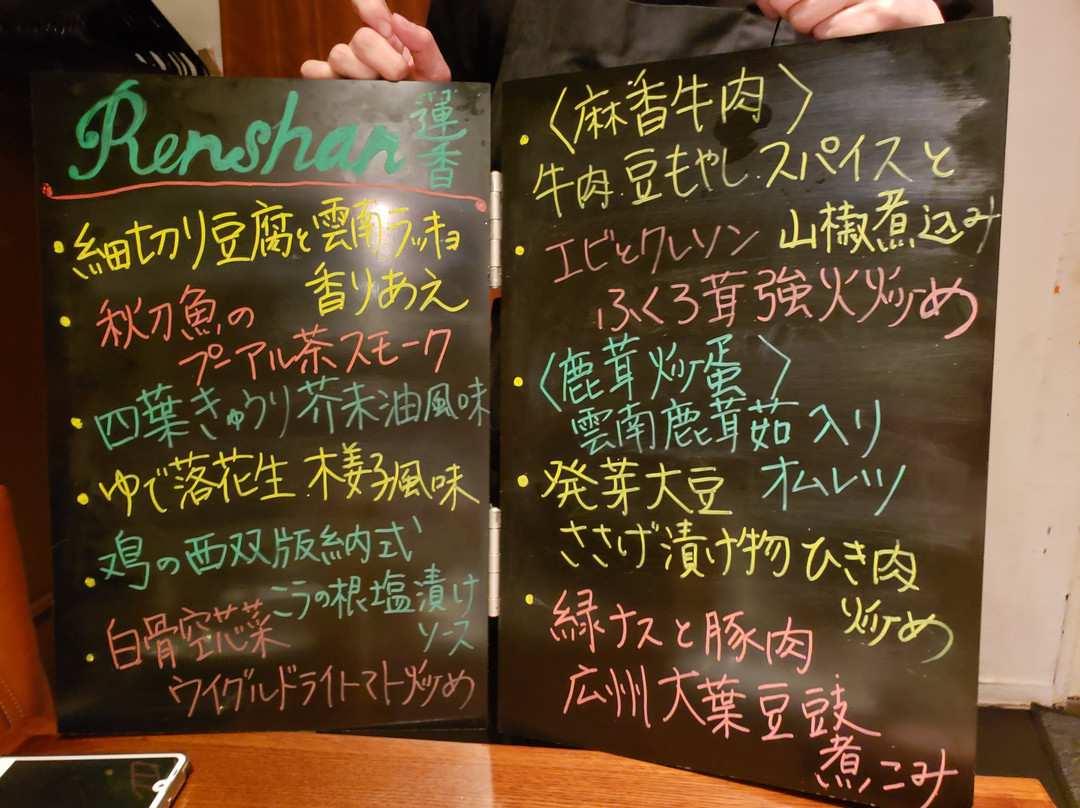 Renshan 蓮香
・細切り豆腐と雲南ラッキョ
香りあえ
・秋刀魚の
プーアル茶スモーク
・四葉きゅうり芥末油風味
・ゆで落花生 木姜子風味
・鶏の西双版納式
こうの根塩漬け
ソース
・白骨空芯菜
ウイグルドライトマト炒め
・〈麻香牛肉〉
牛肉.豆もやし.スパイスと
山椒煮込み
・エビとクレソン
ふくろ茸強火炒め
・〈鹿茸炒蛋〉
雲南鹿茸茹入り
オムレツ
・発芽大豆
ささげ漬け物ひき肉
炒め
・緑ナスと豚肉
広州大葉豆豉
煮こみ